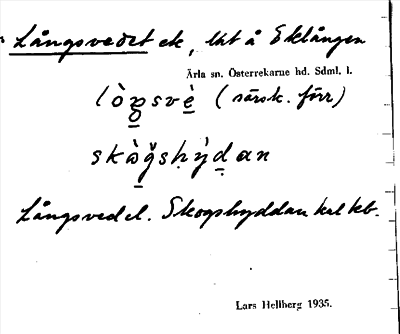 Långsvedet ek, Ut å Eklången
Ärla sn. Österrekarne hd. Sdml. l.
lò̀gsvè (särsk. förr)
skògshỳdan
Långsved el. Skogshyddan kal kb.
Lars Hellberg 1935.